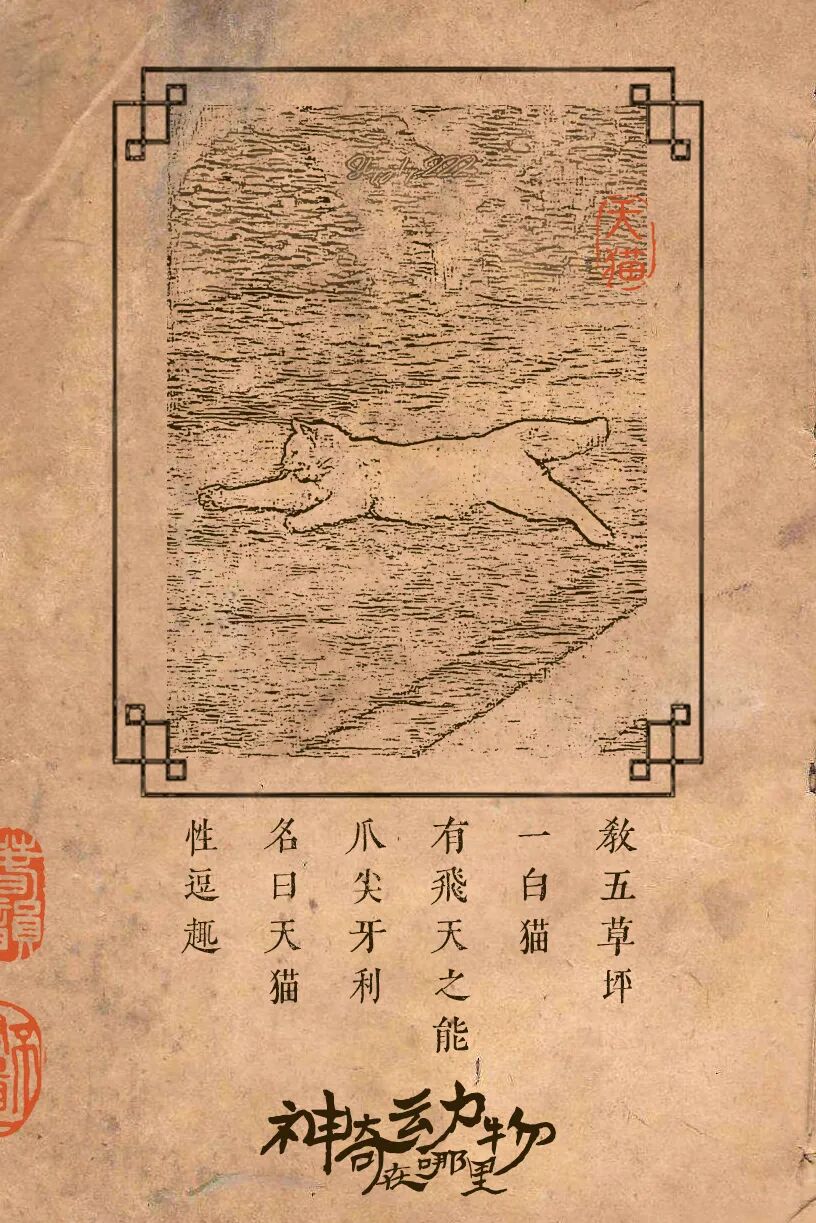 天猫
教五草坪
一白猫
有飛天之能
爪尖牙利
名曰天猫
性逗趣
神奇动物
在哪里